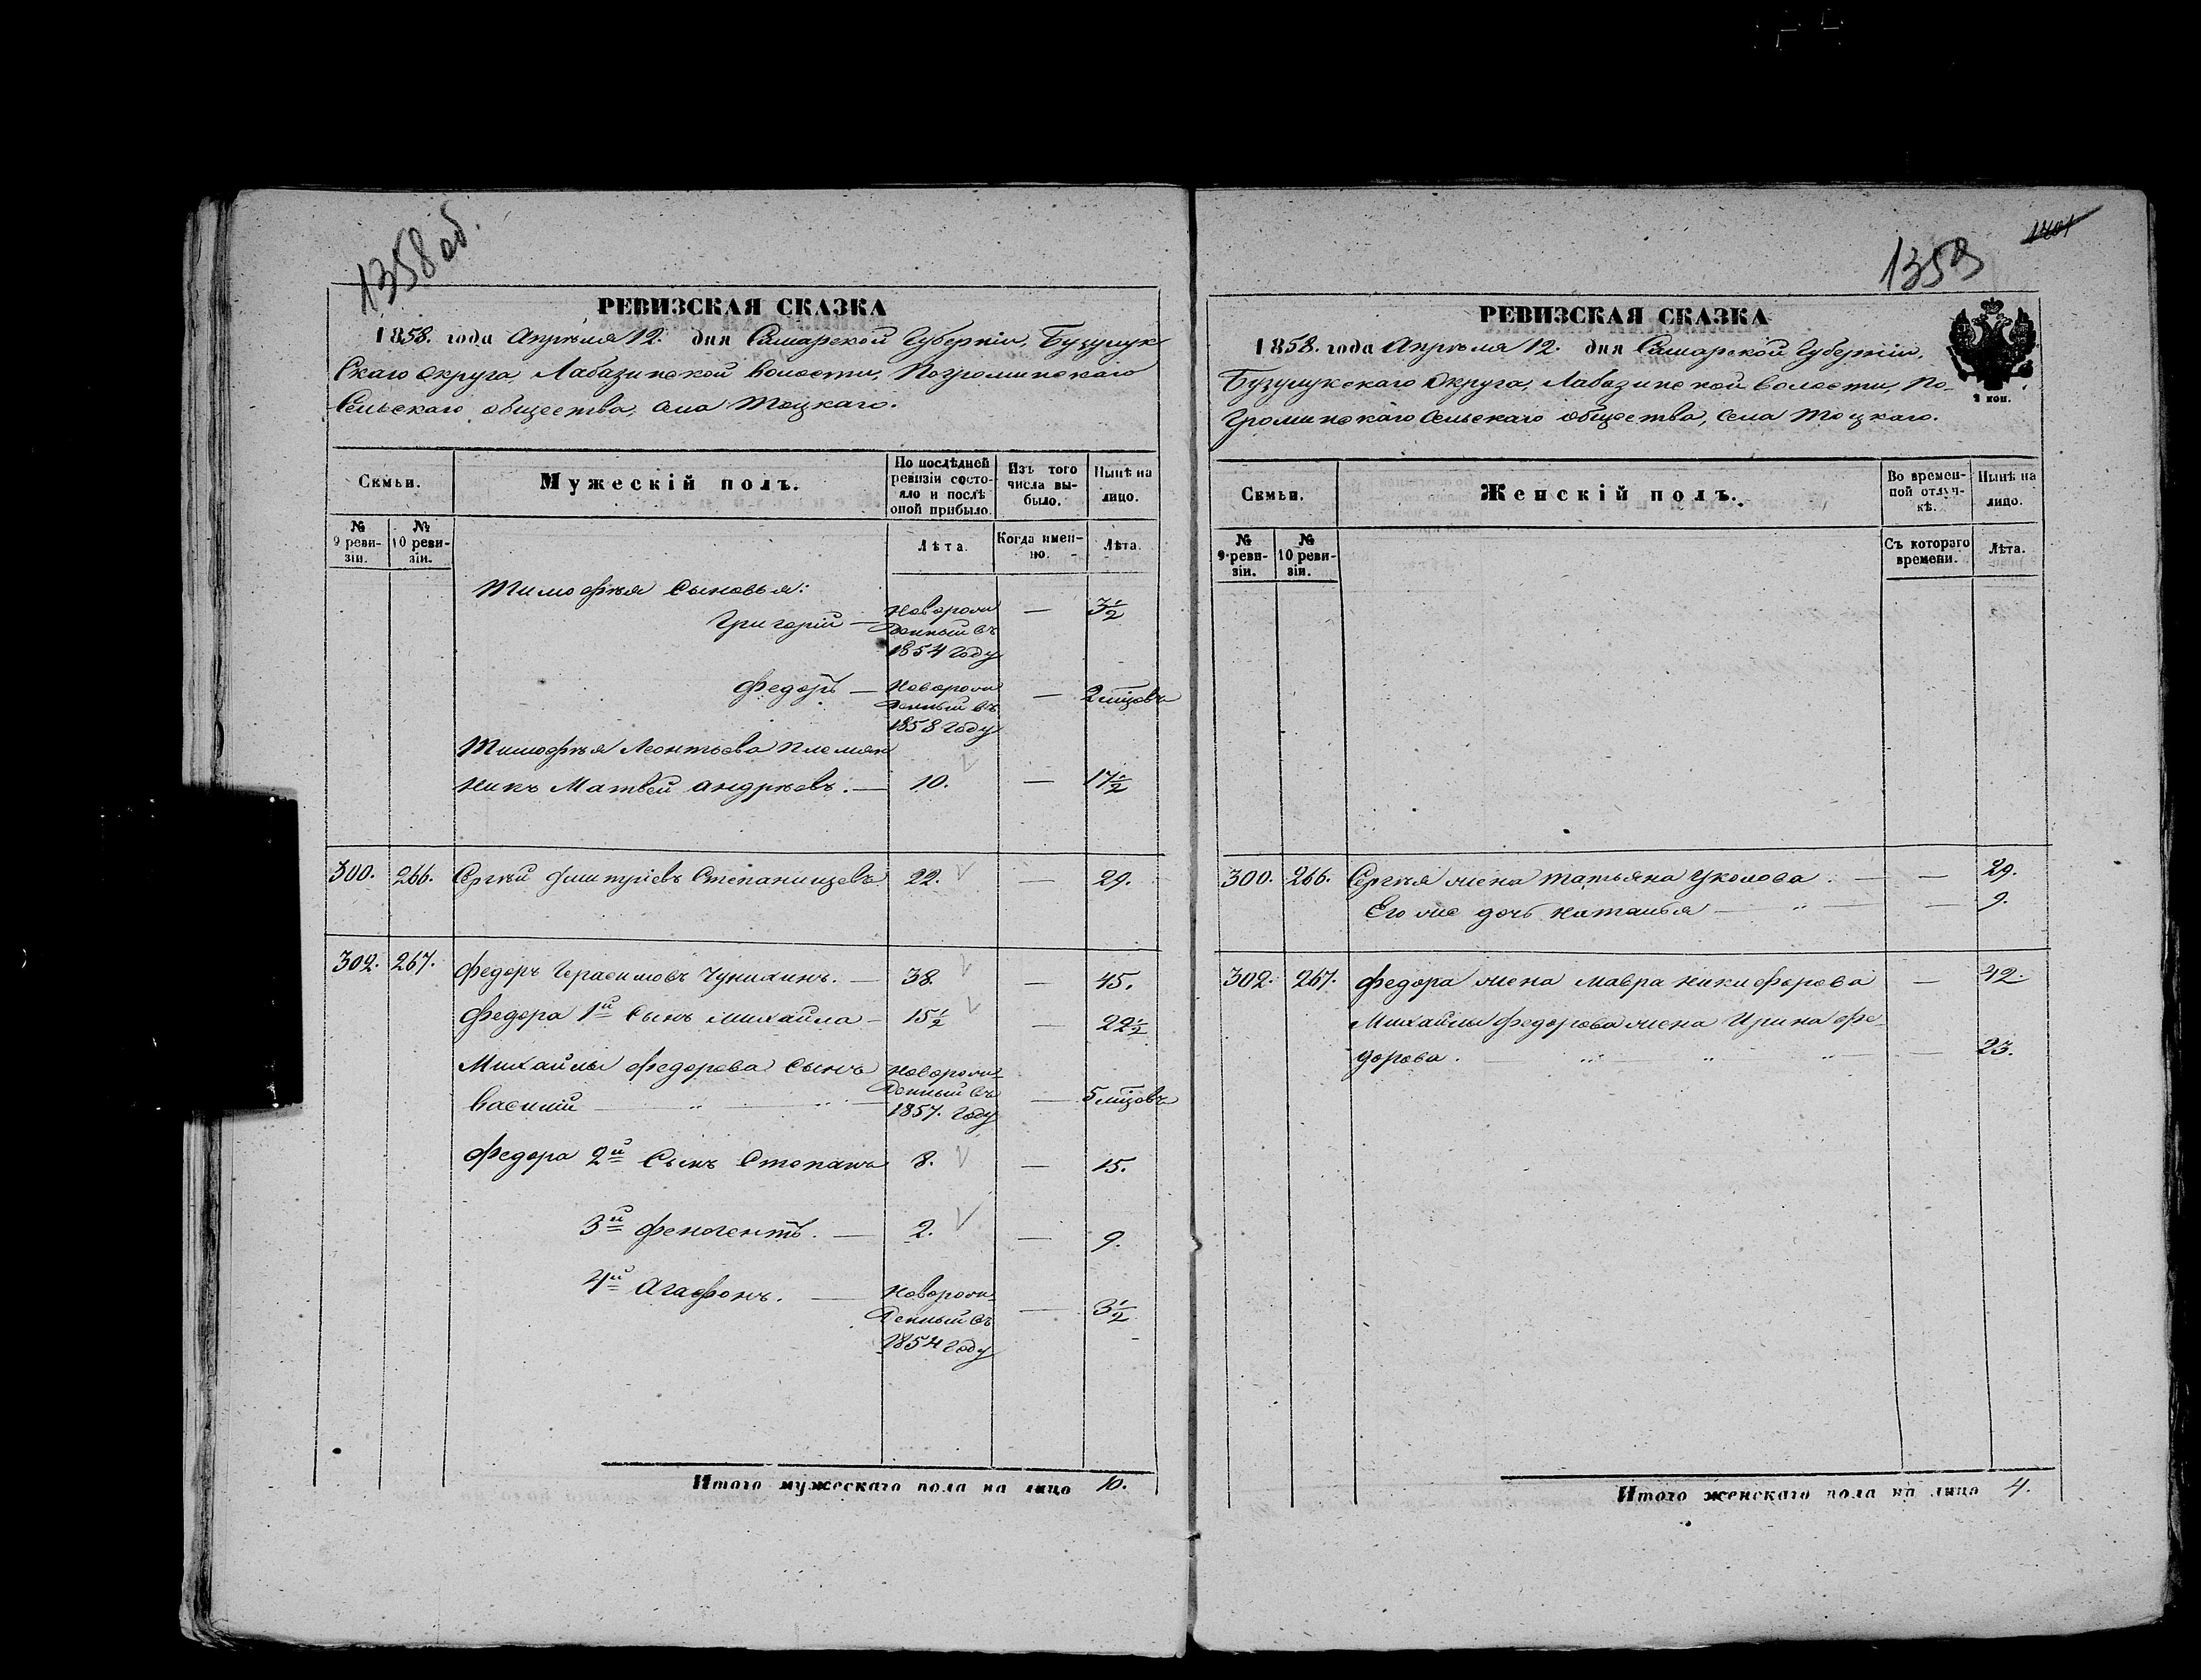 1358 об.
РЕВИЗСКАЯ СКАЗКА
1858. года Апрѣля 12. дня Самарской Губерніи, Бузулук
скаго округа, Лабазинской волости, Погроминскаго
Сельскаго общества, села Тоцкаго.
Семьи.
Мужескій полъ.
По послѣдней
ревизіи состо-
яло и послѣ
оной прибыло.
Изъ того
числа вы-
было.
Нынѣ на
лицо.
№
9 реви-
зіи.
№
10 реви-
зіи.
Лѣта.
Когда имен-
но.
Лѣта.
Тимофѣя Сыновья:
Григорій — Новорож
денный въ
1854 году
— 3½
Федоръ — Новорож
денный въ
1858 году
— 2 мѣцовъ
Тимофѣя Леонтьева племян
никъ Матвей Андрѣевъ. — 10. — 17½
300. 266. Сергѣй Дмитріевъ Степанищевъ 22. — 29.
302. 267. Федоръ Герасимовъ Чунихинъ. — 38. — 45.
Федора 1й Сынъ Михайла — 15½ — 22½
Михайлы Федорова Сынъ
Василій
Новорож-
денный въ
1857. году
— 5 мѣцовъ
Федора 2й Сынъ Степанъ 8. — 15.
3й Феногентъ. — 2. — 9.
4й Агафонъ. — Новорож-
денный въ
1854 году
— 3½
Итого мужескаго пола на лицо 10.
1359
РЕВИЗСКАЯ СКАЗКА
1858. года Апрѣля 12. дня Самарской Губерніи,
Бузулукскаго Округа, Лабазинской волости, По-
громинскаго Сельскаго общества, села Тоцкаго.
2 коп.
Семьи.
Женскій полъ.
Во времен-
ной отлуч-
кѣ.
Нынѣ на
лицо.
№
9 реви-
зіи.
№
10 реви-
зіи.
Съ котораго
времени.
Лѣта.
300. 266. Сергѣя жена Татьяна Уколова. — — 29.
Его же дочь Наталья — — 9.
302. 267. Федора жена Мавра Никифорова — 42.
Михайлы Федорова жена Ирина Фе-
дорова. — 23.
Итого женскаго пола на лицо 4.